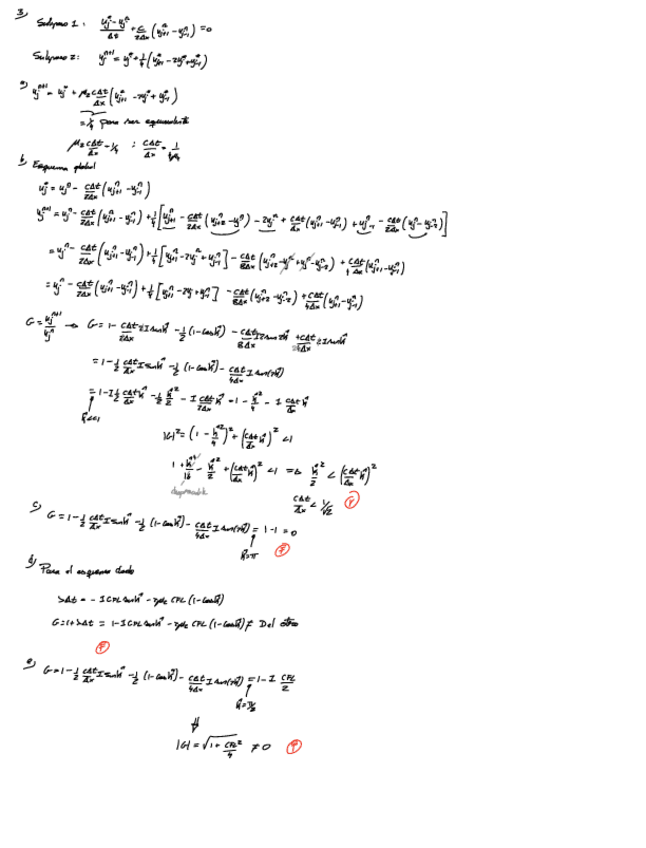 3)
Subpaso 1: (u_j^* - u_j^n)/Δt + c/(2Δx) (u_{j+1}^n - u_{j-1}^n) = 0
Subpaso 2: u_j^{n+1} = u_j^* + 1/4 (u_{j+1}^* - 2u_j^* + u_{j-1}^*)
a) u_j^{n+1} = u_j^* + μ_2 cΔt/Δx (u_{j+1}^* - 2u_j^* + u_{j-1}^*)
= 1/4 para ser equivalente
μ_2 cΔt/Δx = 1/4 ; cΔt/Δx =
b) Esquema global
u_j^* = u_j^n - cΔt/(2Δx) (u_{j+1}^n - u_{j-1}^n)
u_j^{n+1} = u_j^n - cΔt/(2Δx) (u_{j+1}^n - u_{j-1}^n) + 1/4 [u_{j+1}^n - cΔt/(2Δx) (u_{j+2}^n - u_j^n) - 2u_j^n + cΔt/Δx (u_{j+1}^n - u_{j-1}^n) + u_{j-1}^n - cΔt/(2Δx) (u_j^n - u_{j-2}^n)]
= u_j^n - cΔt/(2Δx) (u_{j+1}^n - u_{j-1}^n) + 1/4 [u_{j+1}^n - 2u_j^n + u_{j-1}^n] - cΔt/(8Δx) (u_{j+2}^n - u_j^n + u_j^n - u_{j-2}^n) + cΔt/(4Δx) (u_{j+1}^n - u_{j-1}^n)
= u_j^n - cΔt/(2Δx) (u_{j+1}^n - u_{j-1}^n) + 1/4 [u_{j+1}^n - 2u_j^n + u_{j-1}^n] - cΔt/(8Δx) (u_{j+2}^n - u_{j-2}^n) + cΔt/(4Δx) (u_{j+1}^n - u_{j-1}^n)
G = u_j^{n+1}/u_j^n → G = 1 - cΔt/(2Δx) 2I sin k̂ - 1/2 (1 - cos k̂) - cΔt/(8Δx) I2 sin 2k̂ + cΔt/(4Δx) 2I sin k̂
= 1 - 1/2 cΔt/Δx I sin k̂ - 1/2 (1 - cos k̂) - cΔt/(4Δx) I sin(2k̂)
= 1 - I 1/2 cΔt/Δx k̂ - 1/2 k̂²/2 - I cΔt/(2Δx) k̂ = 1 - k̂²/4 - I cΔt/Δx k̂
k̂<<1
|G|² = (1 - k̂²/4)² + (cΔt/Δx k̂)² < 1
1 + k̂⁴/16 - k̂²/2 + (cΔt/Δx k̂)² < 1 ⇒ k̂²/2 < (cΔt/Δx k̂)²
despreciable
cΔt/Δx < 1/√2 (F)
c) G = 1 - 1/2 cΔt/Δx I sin k̂ - 1/2 (1 - cos k̂) - cΔt/(4Δx) I sin(2k̂) = 1 - 1 = 0
k̂=π (F)
d) Para el esquema dado
λΔt = - I CFL sin k̂ - 2μ_2 CFL (1 - cos k̂)
G = 1 + λΔt = 1 - I CFL sin k̂ - 2μ_2 CFL (1 - cos k̂) ≠ Del otro
(F)
e) G = 1 - 1/2 cΔt/Δx I sin k̂ - 1/2 (1 - cos k̂) - cΔt/(4Δx) I sin(2k̂) = 1 - I CFL/2
k̂=π/2
⇓
|G| = √(1 + CFL²/4) ≠ 0 (F)